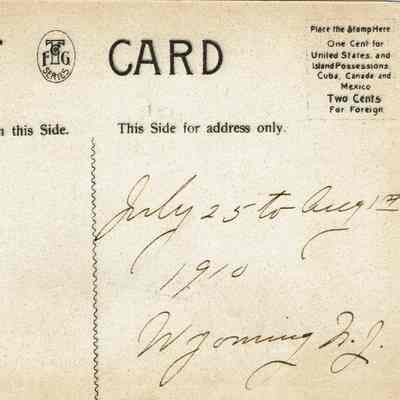 TFG
SERIES
CARD
Place the Stamp Here
One Cent for
United States, and
Island Possessions,
Cuba, Canada and
Mexico
Two Cents
For Foreign
n this Side.
This Side for address only.
July 25 to Aug 1st
1910
Wyoming N.J.